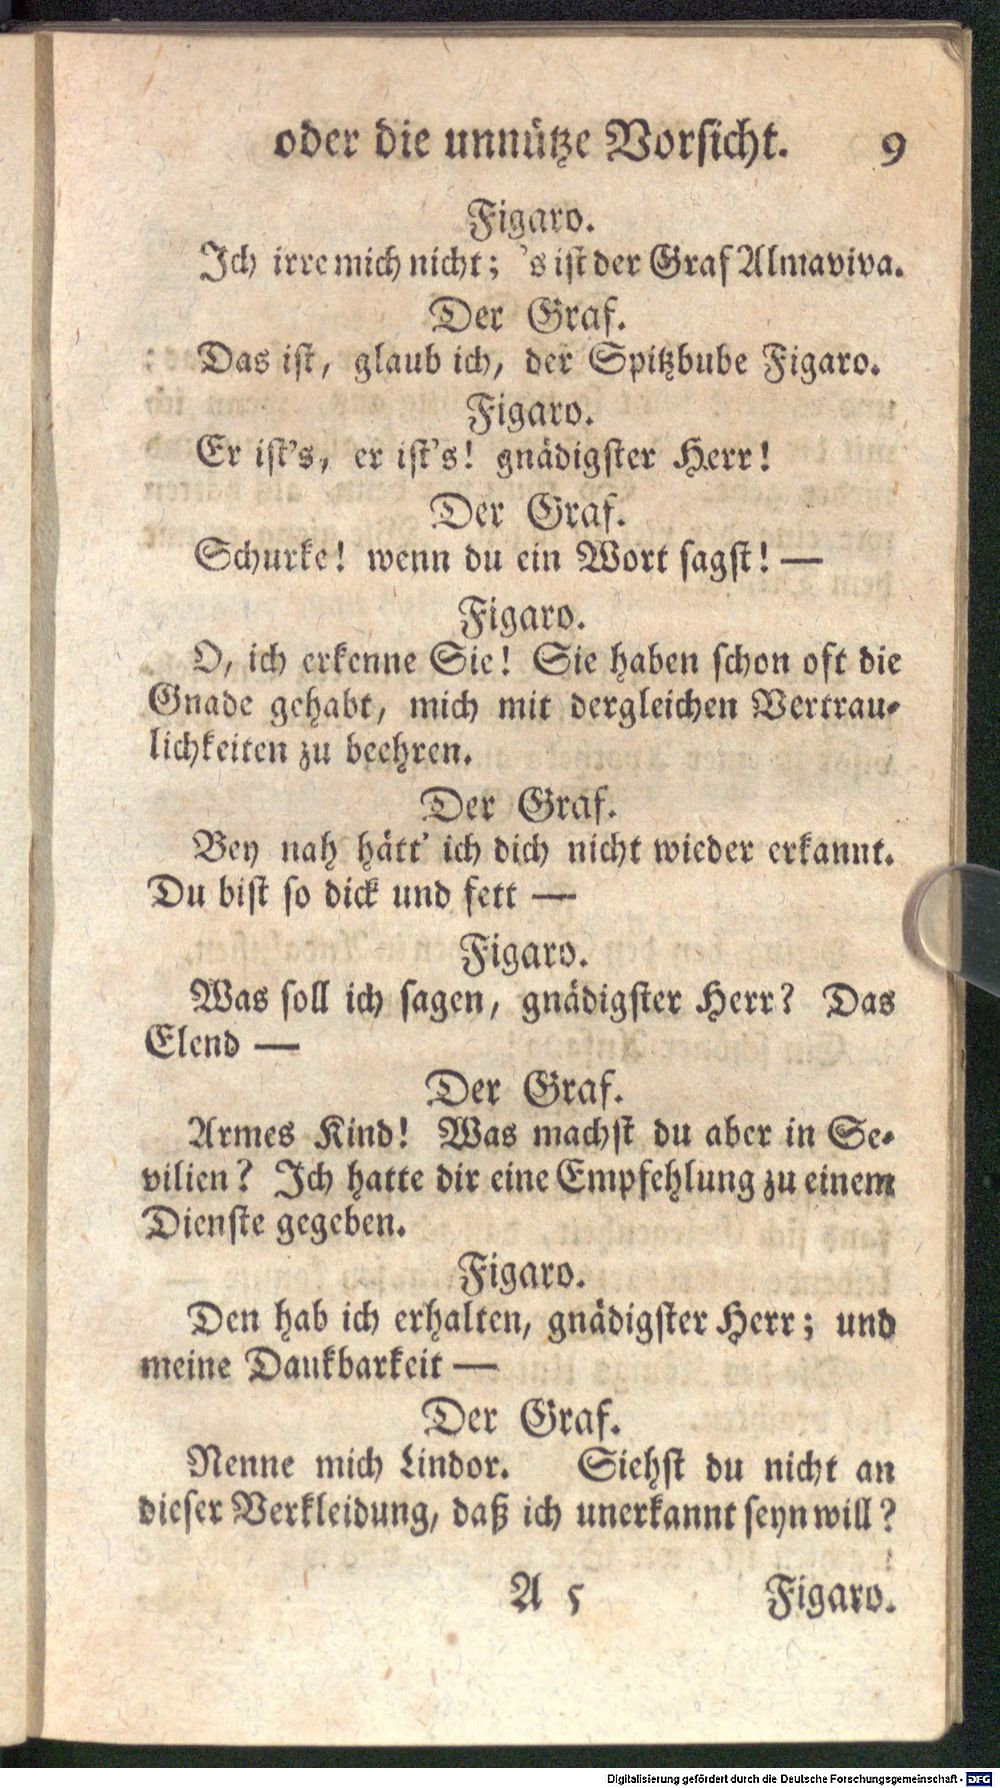 oder die unnütze Vorsicht. 9
Figaro.
Ich irre mich nicht; 's ist der Graf Almaviva.
Der Graf.
Das ist, glaub ich, der Spitzbube Figaro.
Figaro.
Er ist's, er ist's! gnädigster Herr!
Der Graf.
Schurke! wenn du ein Wort sagst! —
Figaro.
O, ich erkenne Sie! Sie haben schon oft die
Gnade gehabt, mich mit dergleichen Vertrau-
lichkeiten zu beehren.
Der Graf.
Bey nah hätt' ich dich nicht wieder erkannt.
Du bist so dick und fett —
Figaro.
Was soll ich sagen, gnädigster Herr? Das
Elend —
Der Graf.
Armes Kind! Was machst du aber in Se-
vilien? Ich hatte dir eine Empfehlung zu einem
Dienste gegeben.
Figaro.
Den hab ich erhalten, gnädigster Herr; und
meine Daukbarkeit —
Der Graf.
Nenne mich Lindor. Siehst du nicht an
dieser Verkleidung, daß ich unerkannt seyn will?
A 5 Figaro.
Digitalisierung gefördert durch die Deutsche Forschungsgemeinschaft - DFG